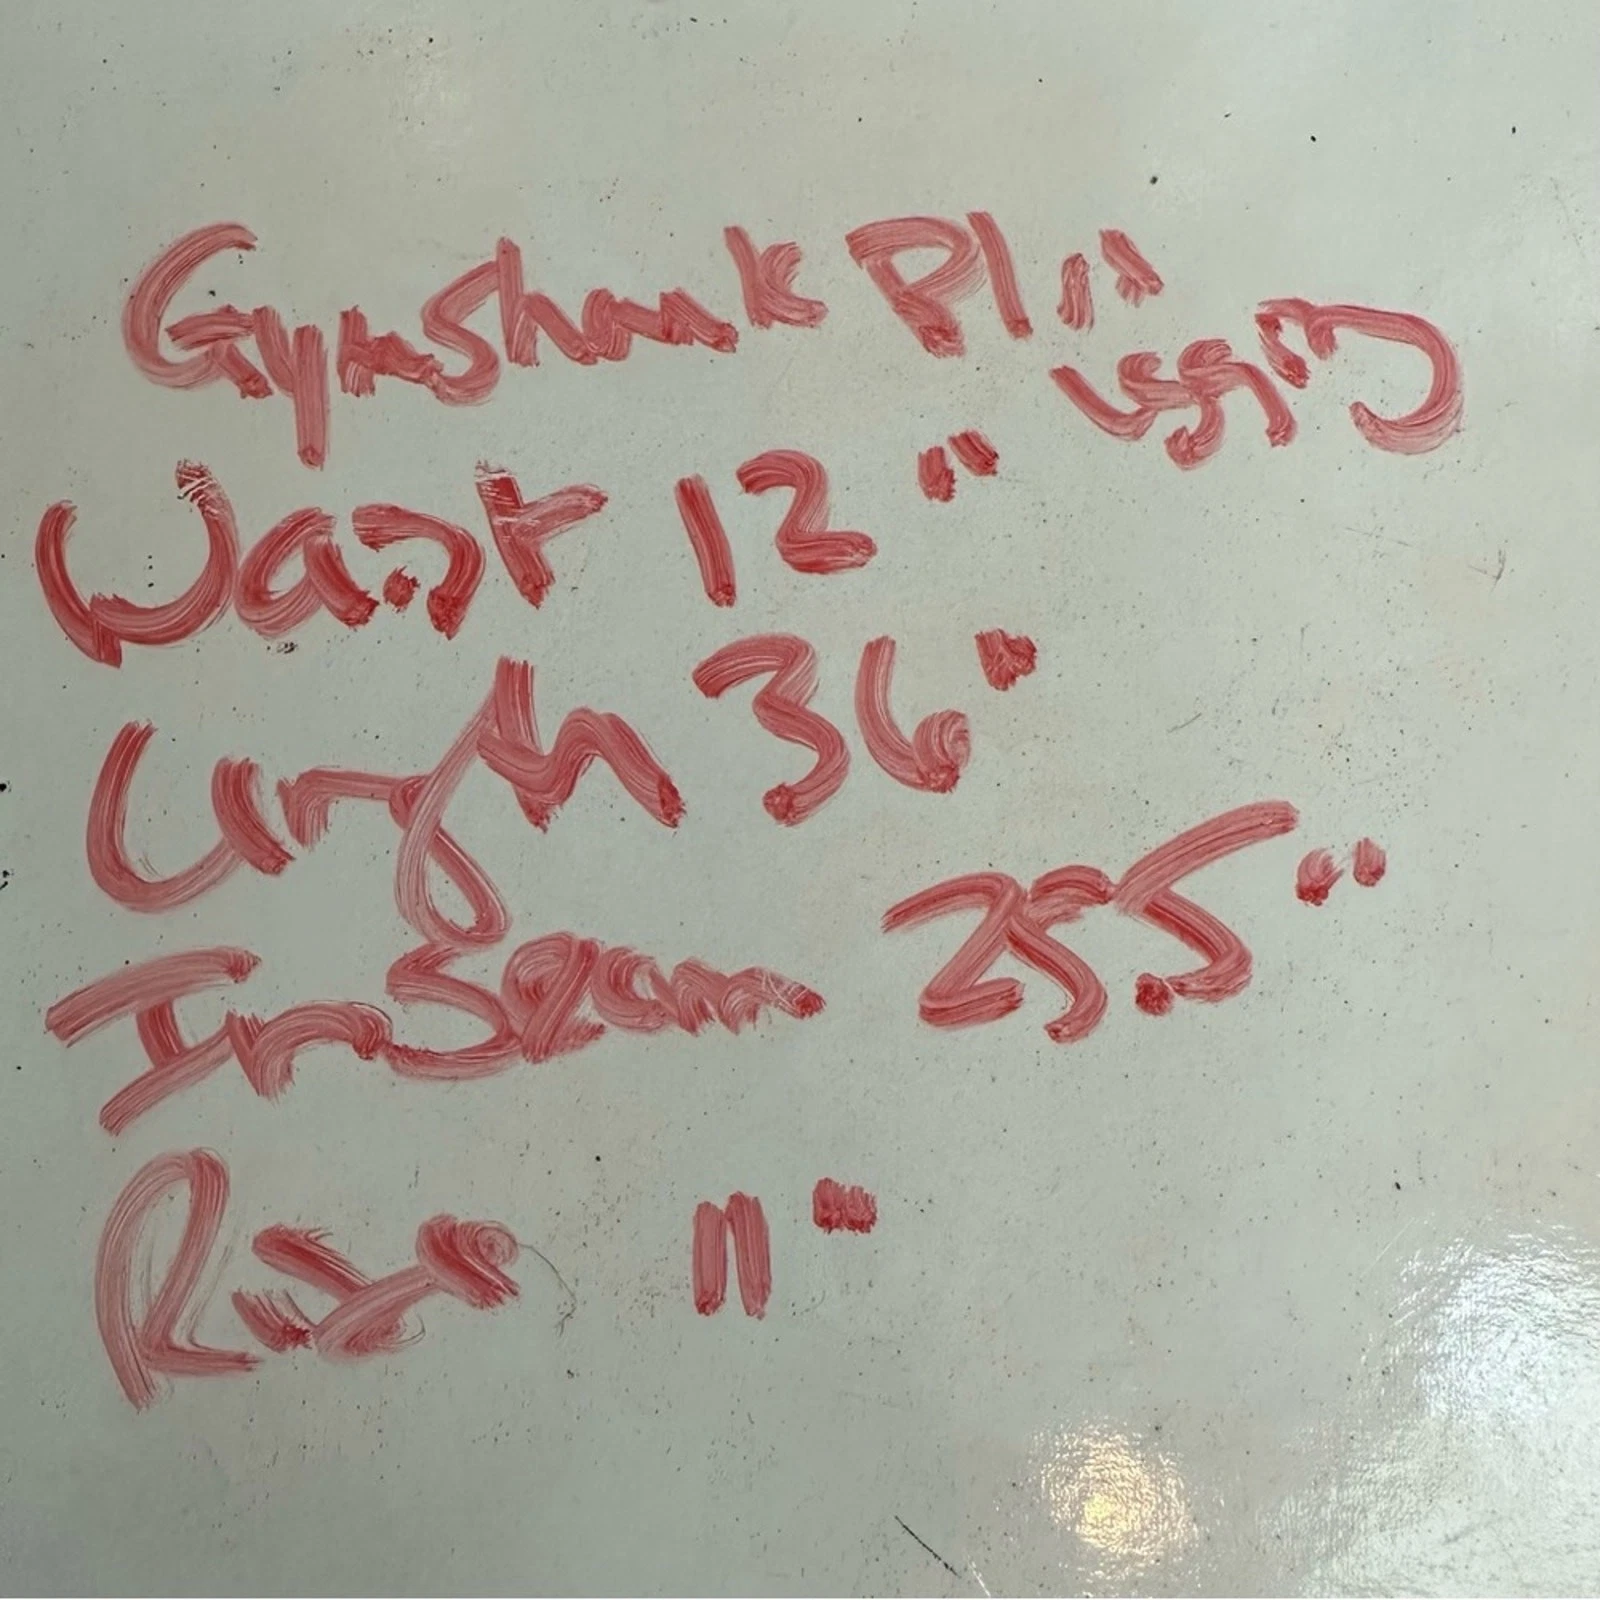 Gymshark Pl 11"
legging
Waist 12"
Length 36"
Inseam 25.5"
Rise 11"